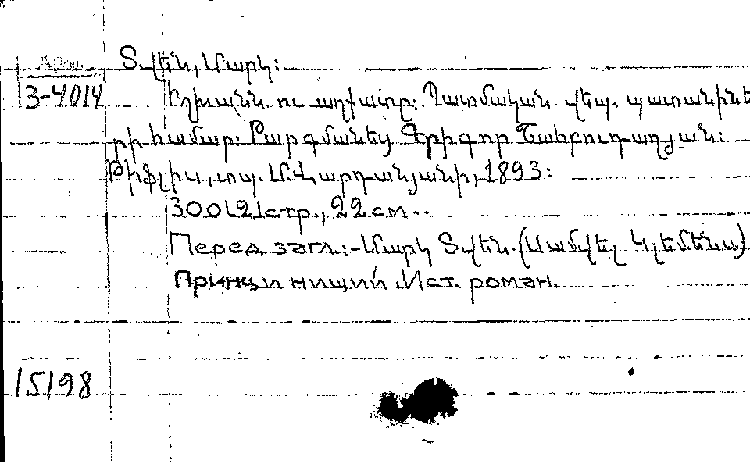 Տվեն, Մարկ:
3-4014 Իշխանն ու աղքատը: Պատմական վեպ. պատանինե
րի համար: Թարգմանեց Գրիգոր
Թիֆլիս, տպ. Մ. Վարդանյանի, 1893:
300 [2] стр., 22 см.
Перед загл.:-Մարկ Տվեն. (Սամվել Կլեմենս)
Принц и нищий Ист. роман.
15198